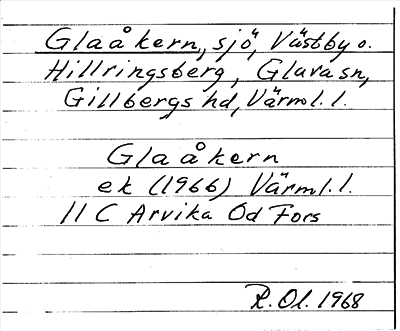 Glaåkern, sjö, Västby o.
Hillringsberg, Glava sn,
Gillbergs hd, Värml. l.
Glaåkern
ek (1966) Värml. l.
11 C Arvika Od Fors
R. Ol. 1968